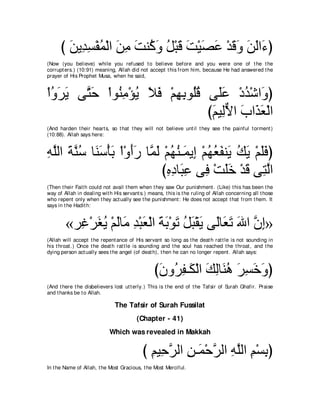 (آلْآنَ وَقَدْ عَصَيْتَ قَبْلُ وَكُنْتَ مِنَ الْمُفْسِدِينَ)
(Now (you believe) while you refused to believe before and you were one of the corrupters.) (10:91) meaning, Allah did not accept this from him, because He had answered the prayer of His Prophet Musa, when he said,
(وَاشْدُدْ عَلَى قُلُوبِهِمْ فَلاَ يُؤْمِنُواْ حَتَّى يَرَوُاْ الْعَذَابَ الاٌّلِيمَ)
(And harden their hearts, so that they will not believe until they see the painful torment) (10:88). Allah says here:
(فَلَمْ يَكُ يَنفَعُهُمْ إِيمَـنُهُمْ لَمَّا رَأَوْاْ بَأْسَنَا سُنَّةَ اللَّهِ الَّتِى قَدْ خَلَتْ فِى عِبَادِهِ)
(Then their Faith could not avail them when they saw Our punishment. (Like) this has been the way of Allah in dealing with His servants.) means, this is the ruling of Allah concerning all those who repent only when they actually see the punishment: He does not accept that from them. It says in the Hadith:
«إِنَّ اللهَ تَعَالَى يَقْبَلُ تَوْبَةَ الْعَبْدِ مَالَمْ يُغَرْغِر»
(Allah will accept the repentance of His servant so long as the death rattle is not sounding in his throat.) Once the death rattle is sounding and the soul has reached the throat, and the dying person actually sees the angel (of death), then he can no longer repent. Allah says:
(وَخَسِرَ هُنَالِكَ الْكَـفِرُونَ)
(And there the disbelievers lost utterly.) This is the end of the Tafsir of Surah Ghafir. Praise and thanks be to Allah.
The Tafsir of Surah Fussilat
(Chapter - 41)
Which was revealed in Makkah
(بِسْمِ اللَّهِ الرَّحْمَـنِ الرَّحِيمِ )
In the Name of Allah, the Most Gracious, the Most Merciful.